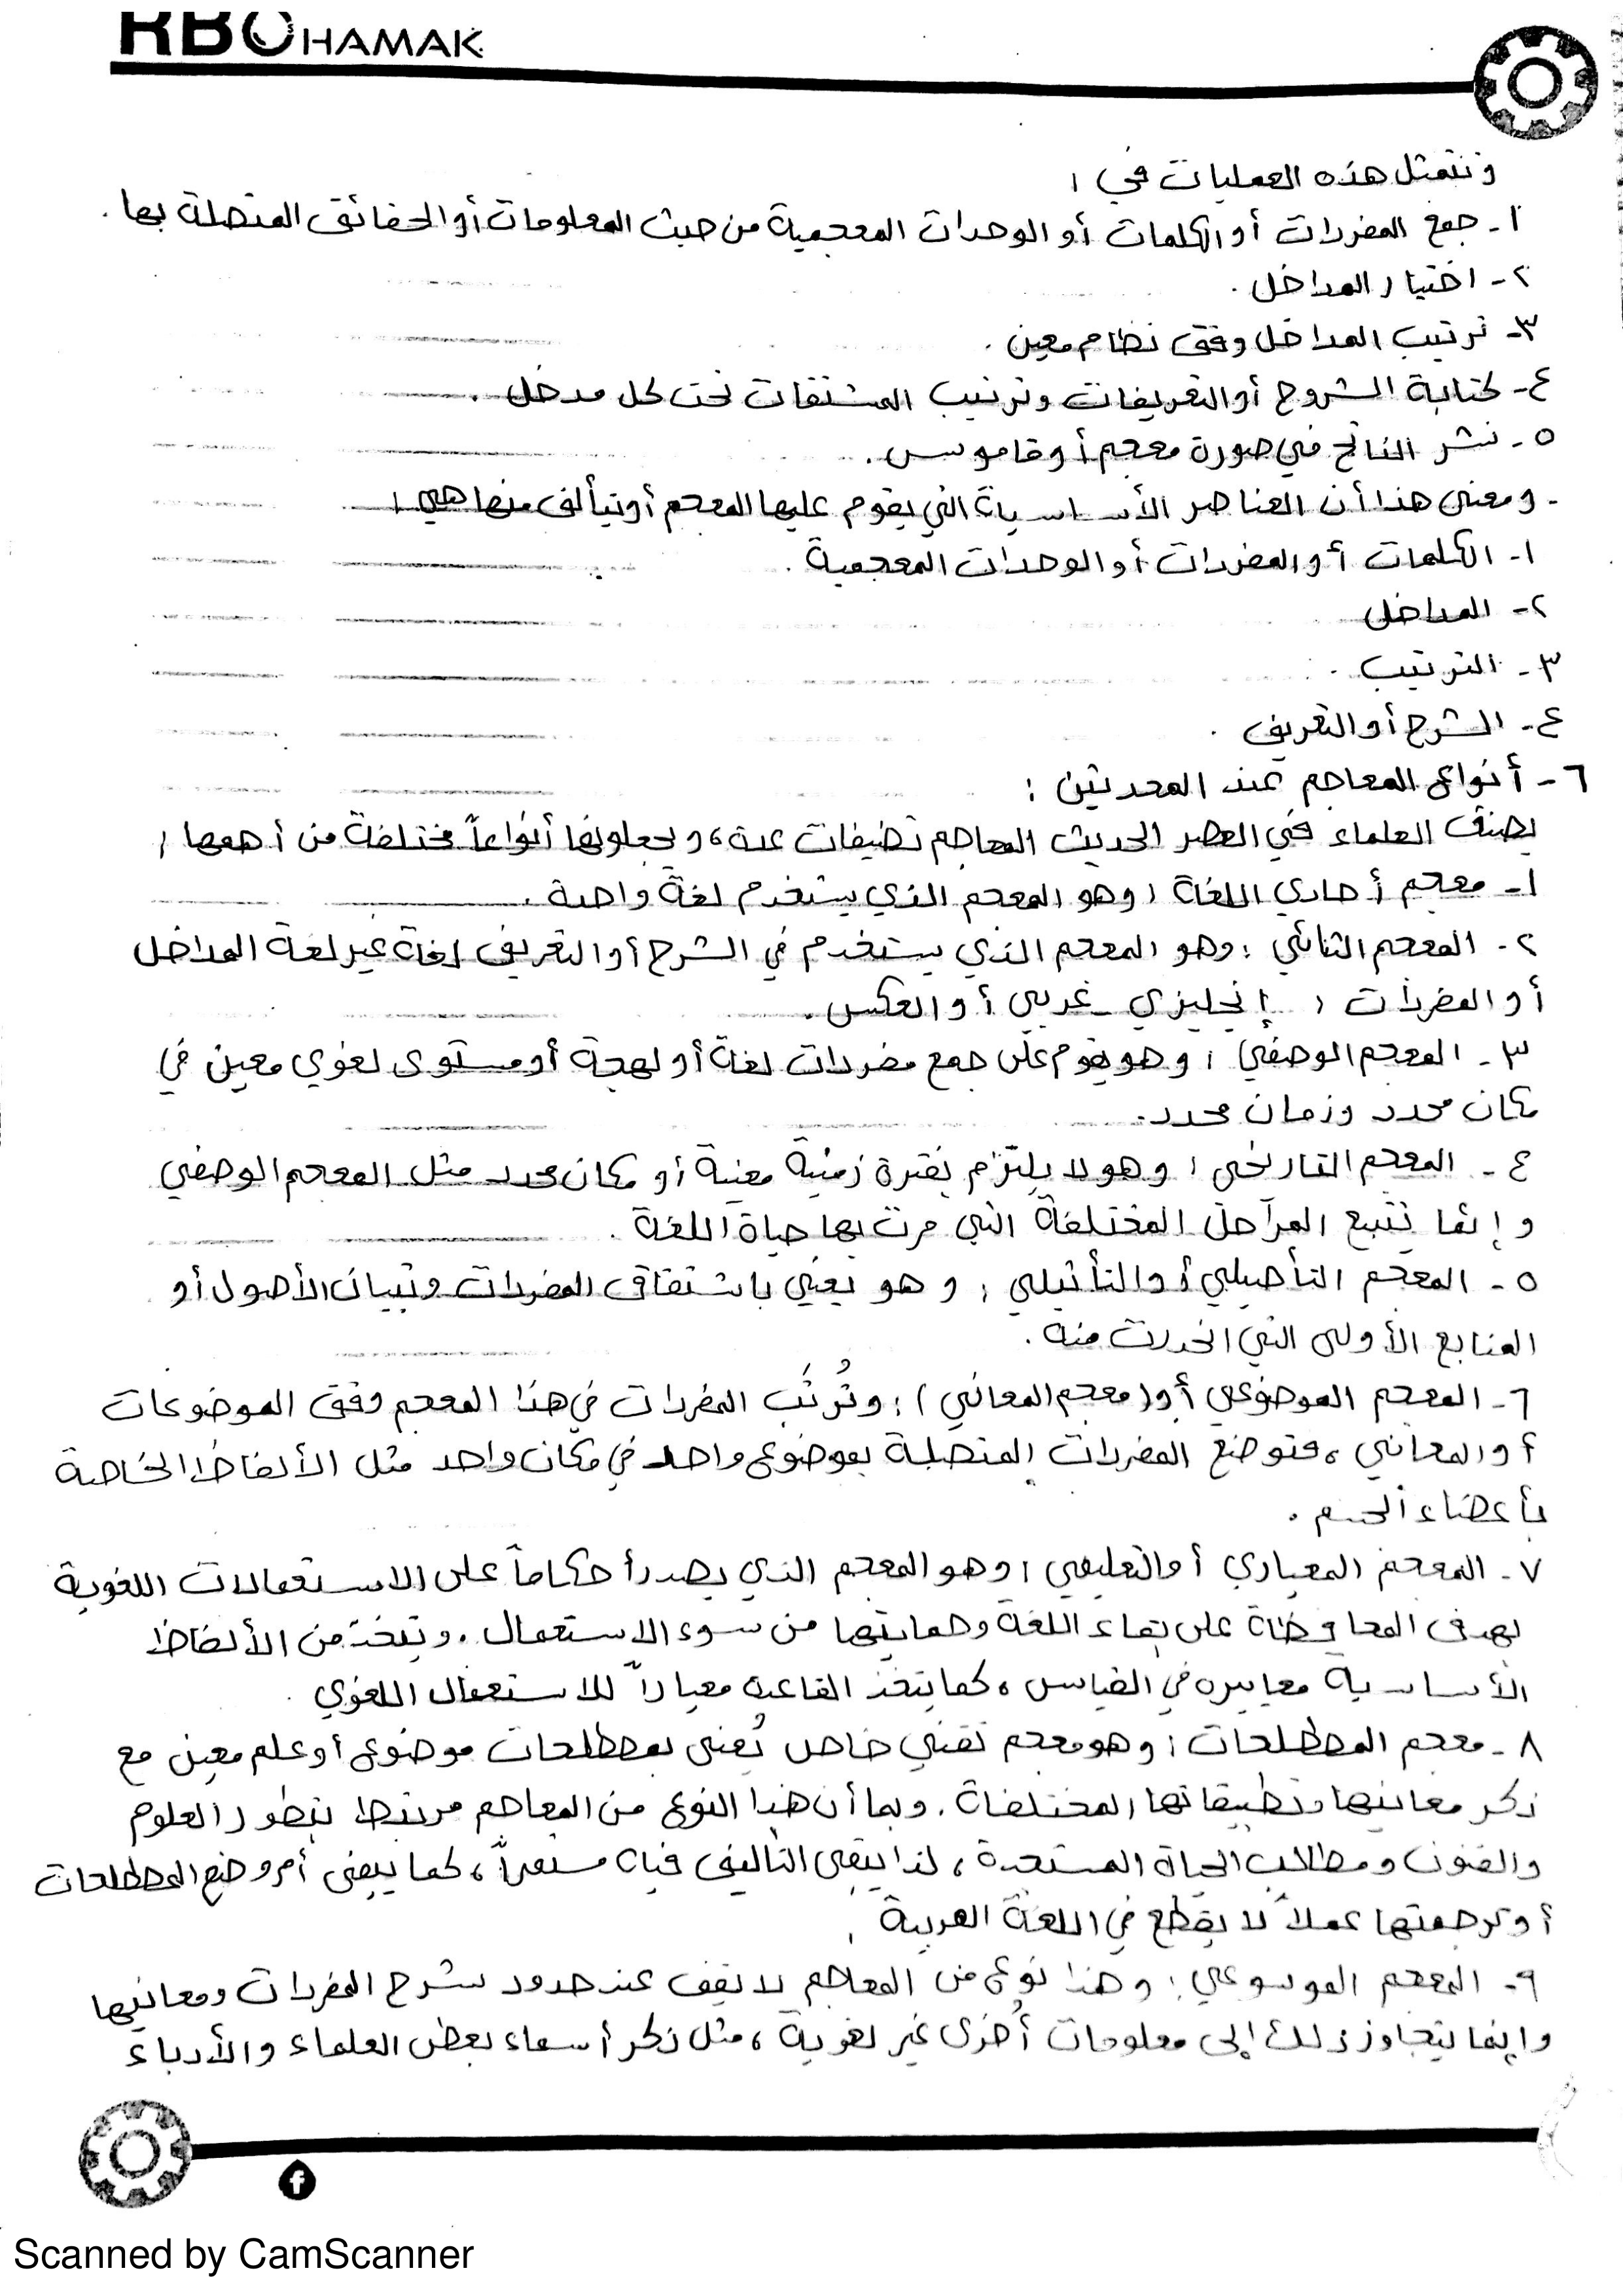 RBCHAMAK
وتتمثل هذه العمليات في :
١- جمع المفردات أو الكلمات أو الوحدات المعجمية من حيث المعلومات أو الحقائق المتصلة بها .
٢- اختيار المداخل .
٣- ترتيب المداخل وفق نظام معين .
٤- كتابة الشروح أو التعريفات وترتيب المشتقات تحت كل مدخل .
٥- نشر الناتج في صورة معجم أو قاموس .
- ومعنى هذا أن العناصر الأساسية التي يقوم عليها المعجم أو يتألف منها هي :
١- الكلمات أو المفردات أو الوحدات المعجمية .
٢- المداخل
٣- الترتيب .
٤- الشرح أو التعريف .
٦- أنواع المعاجم عند المحدثين :
يصنف العلماء في العصر الحديث المعاجم تصنيفات عدة ، ويجعلونها أنواعاً مختلفة من أهمها :
١- معجم أحادي اللغة : وهو المعجم الذي يستخدم لغة واحدة .
٢- المعجم الثنائي : وهو المعجم الذي يستخدم في الشرح أو التعريف لغة غير لغة المداخل
أو المفردات : إنجليزي - عربي أو العكس .
٣- المعجم الوصفي : وهو يقوم على جمع مفردات لغة أو لهجة أو مستوى لغوي معين في
مكان محدد وزمان محدد .
٤- المعجم التاريخي : وهو لا يلتزم بفترة زمنية معينة أو مكان محدد مثل المعجم الوصفي
وإنما يتتبع المراحل المختلفة التي مرت بها حياة اللغة .
٥- المعجم التأصيلي أو التأثيلي : وهو يعني باشتقاق المفردات وتبيان الأصول أو
المنابع الأولى التي انحدرت منه .
٦- المعجم الموضوعي أو (معجم المعاني) : وتُرتَّب المفردات في هذا المعجم وفق الموضوعات
أو المعاني ، فتوضع المفردات المتصلة بموضوع واحد في مكان واحد مثل الألفاظ الخاصة
بأعضاء الجسم .
٧- المعجم المعياري أو التعليمي : وهو المعجم الذي يصدر أحكاماً على الاستعمالات اللغوية
بهدف المحافظة على بقاء اللغة وحمايتها من سوء الاستعمال . ويتخذ من الألفاظ
الأساسية معاييره في القياس ، كما يتخذ القاعدة معياراً للاستعمال اللغوي .
٨- معجم المصطلحات : وهو معجم تقني خاص يُعنى بمصطلحات موضوع أو علم معين مع
ذكر معانيها وتطبيقاتها المختلفة . وبما أن هذا النوع من المعاجم مرتبط بتطور العلوم
والفنون ومطالب الحياة المستجدة ، لذا يبقى التأليف فيه مستمراً ، كما يبقى أمر وضع المصطلحات
أو ترجمتها عملاً لا ينقطع في اللغة العربية .
٩- المعجم الموسوعي : وهذا نوع من المعاجم لا يقف عند حدود شرح المفردات ومعانيها
وإنما يتجاوز ذلك إلى معلومات أخرى غير لغوية ، مثل ذكر أسماء بعض العلماء والأدباء
f
Scanned by CamScanner